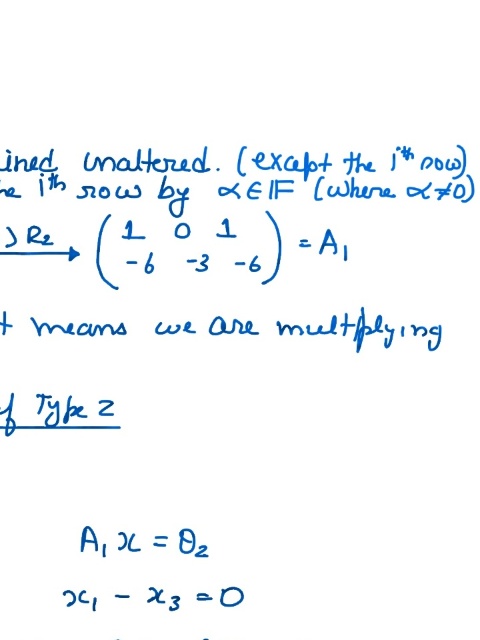 ined unaltered. (except the iᵗʰ row)
he iᵗʰ row by α ∈ F (where α≠0)
) R₂ → ( 1 0 1
-6 -3 -6 ) = A₁
t means we are multplying
of Type 2
A₁ x = θ₂
x₁ - x₃ = 0